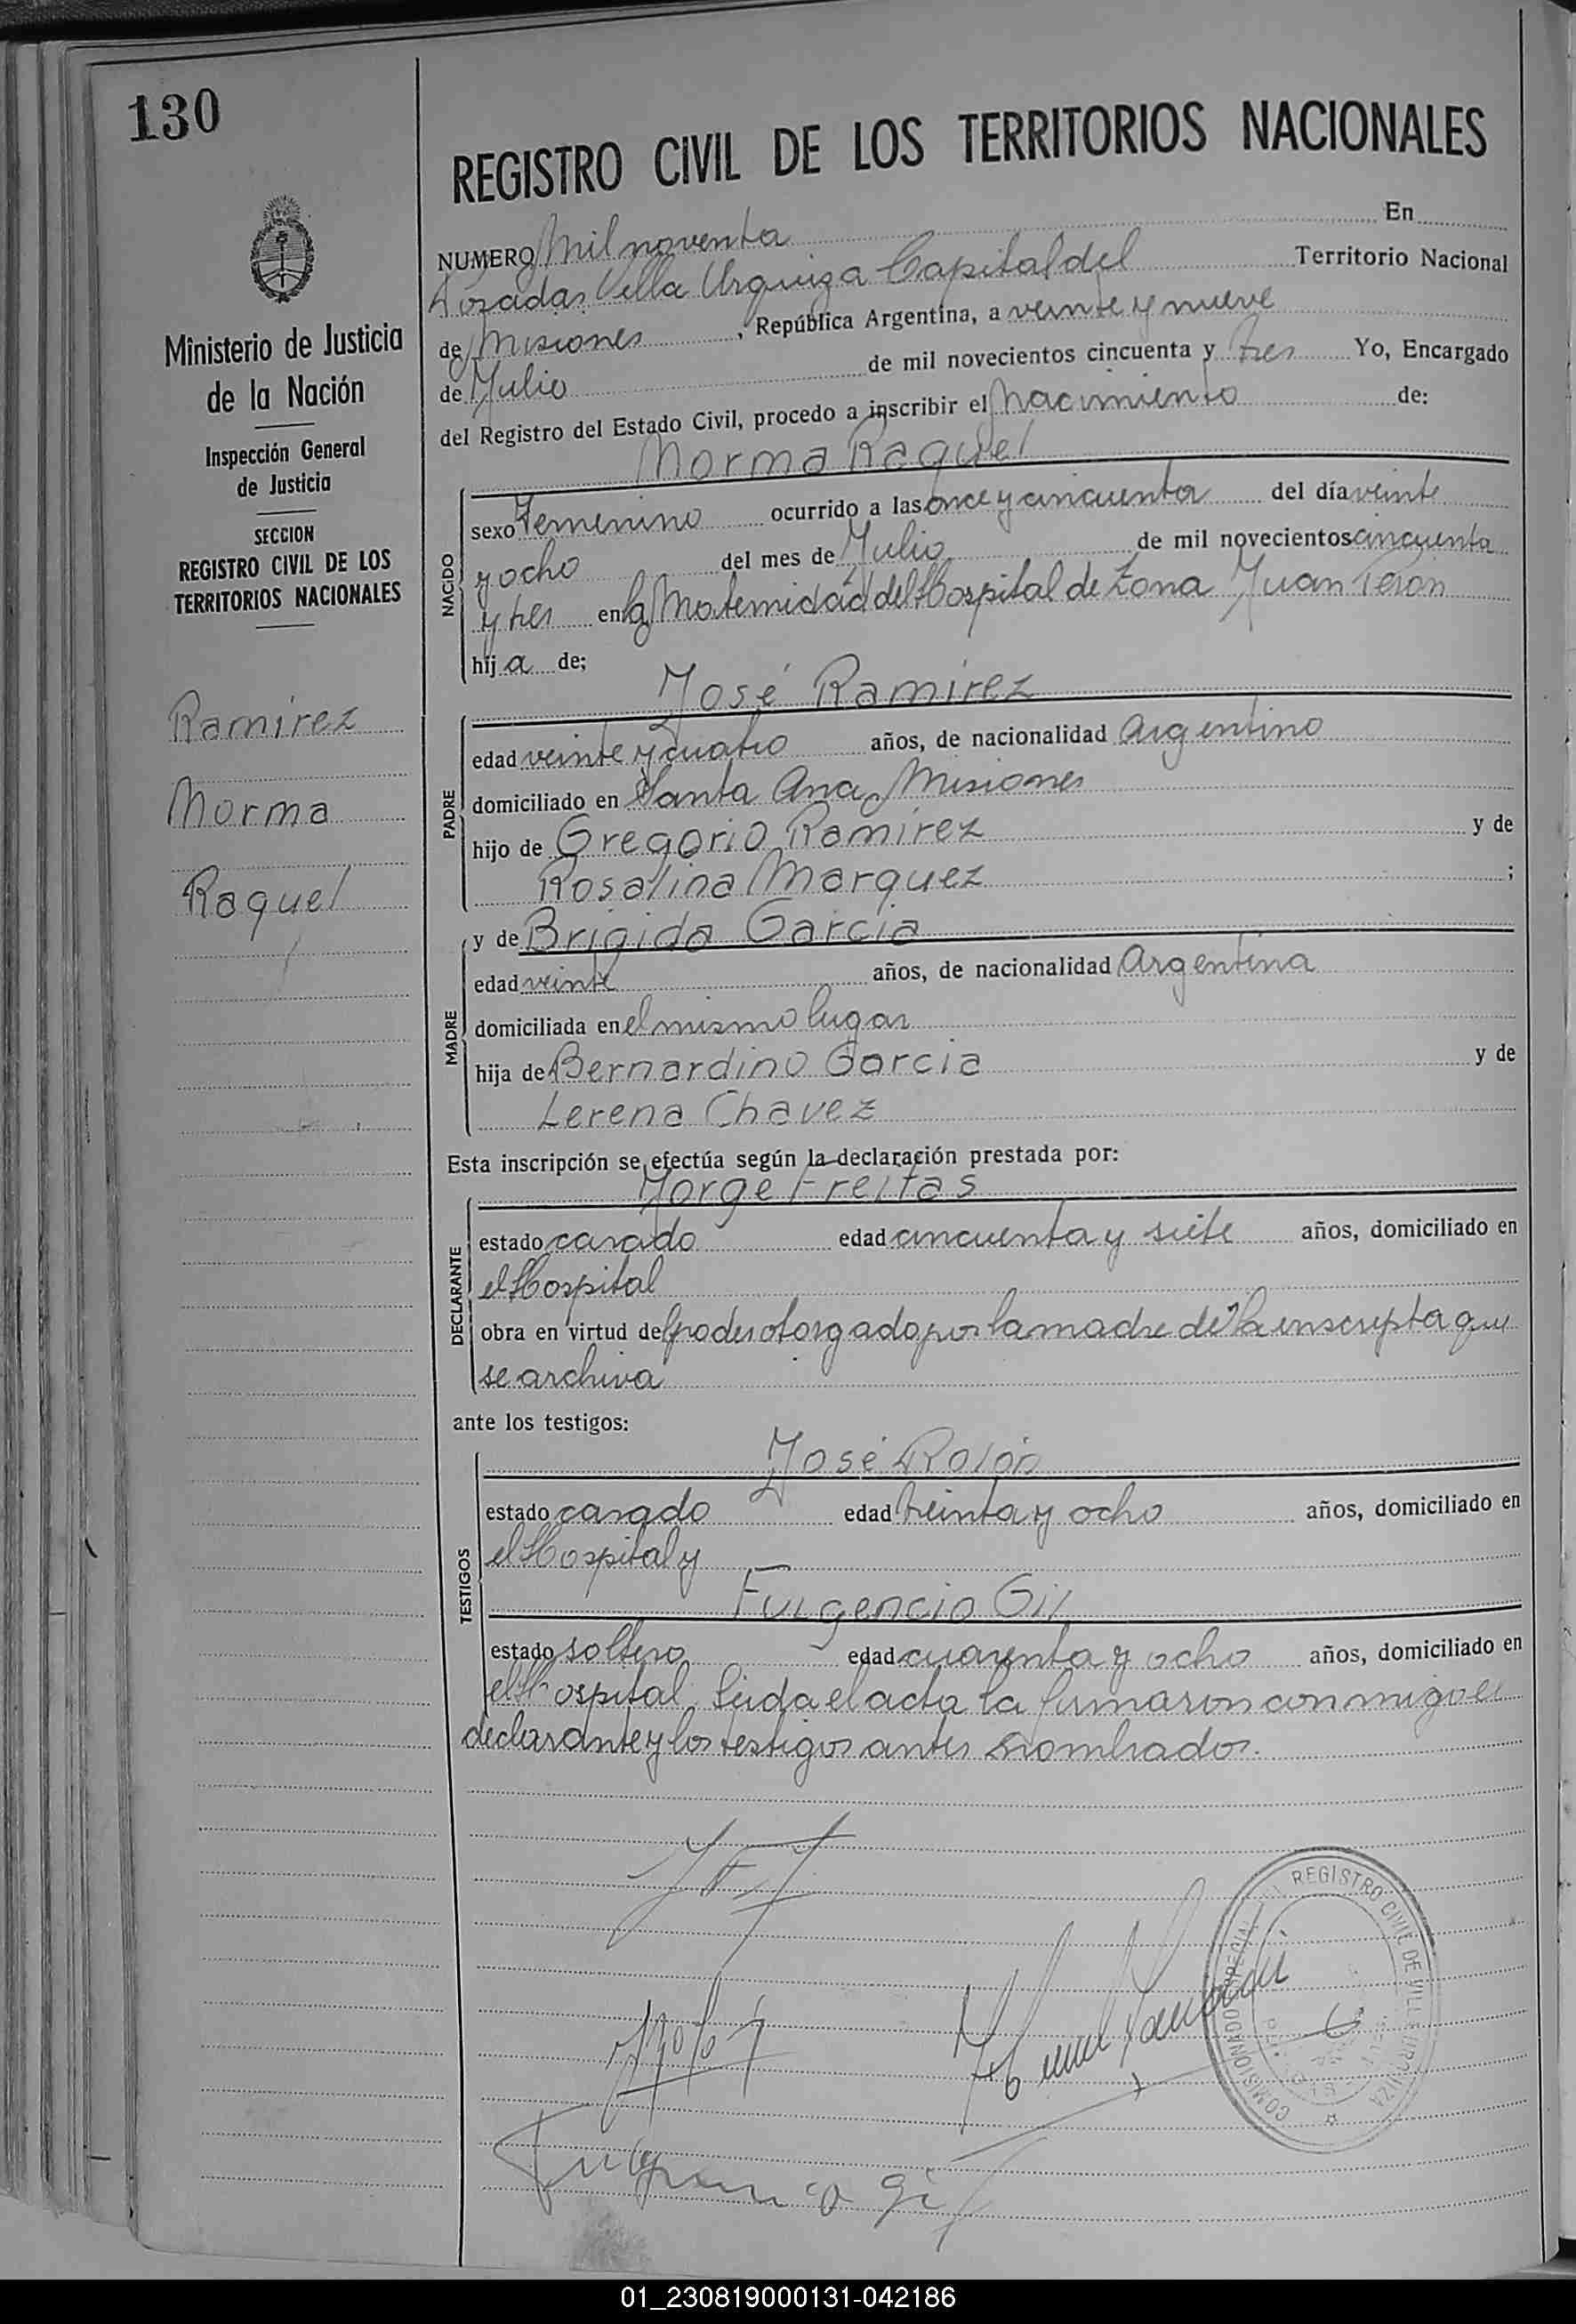 130
Ministerio de Justicia
de la Nación
Inspección General
de Justicia
SECCION
REGISTRO CIVIL DE LOS
TERRITORIOS NACIONALES
Ramirez
Norma
Raquel
REGISTRO CIVIL DE LOS TERRITORIOS NACIONALES
NUMERO Mil noventa En
Posadas Villa Urquiza Capital del Territorio Nacional
de Misiones, República Argentina, a veinte y nueve
de Julio de mil novecientos cincuenta y tres Yo, Encargado
del Registro del Estado Civil, procedo a inscribir el Nacimiento de:
Norma Raquel
NACIDO
sexo Femenino ocurrido a las once y cincuenta del día veinte
y ocho del mes de Julio de mil novecientos cincuenta
y tres en la Maternidad del Hospital de Zona Juan Peron
hija de;
José Ramirez
PADRE
edad veinte y cuatro años, de nacionalidad Argentino
domiciliado en Santa Ana, Misiones
hijo de Gregorio Ramirez y de
Rosalina Marquez ;
y de Brigida Garcia
MADRE
edad veinte años, de nacionalidad Argentina
domiciliada en el mismo lugar
hija de Bernardino Garcia y de
Lerena Chavez
Esta inscripción se efectúa según la declaración prestada por:
Jorge Freitas
DECLARANTE
estado casado edad cincuenta y siete años, domiciliado en
el Hospital
obra en virtud del poder otorgado por la madre de la inscripta que
se archiva
ante los testigos:
José Rolón
TESTIGOS
estado casado edad treinta y ocho años, domiciliado en
el Hospital y
Fulgencio Gil
estado soltero edad cuarenta y ocho años, domiciliado en
el Hospital. Leida el acta la firmaron conmigo el
declarante y los testigos antes nombrados.
Fulgencio Gil
COMISIONADO ESPECIAL DEL REGISTRO CIVIL DE VILLA URQUIZA
01_230819000131-042186